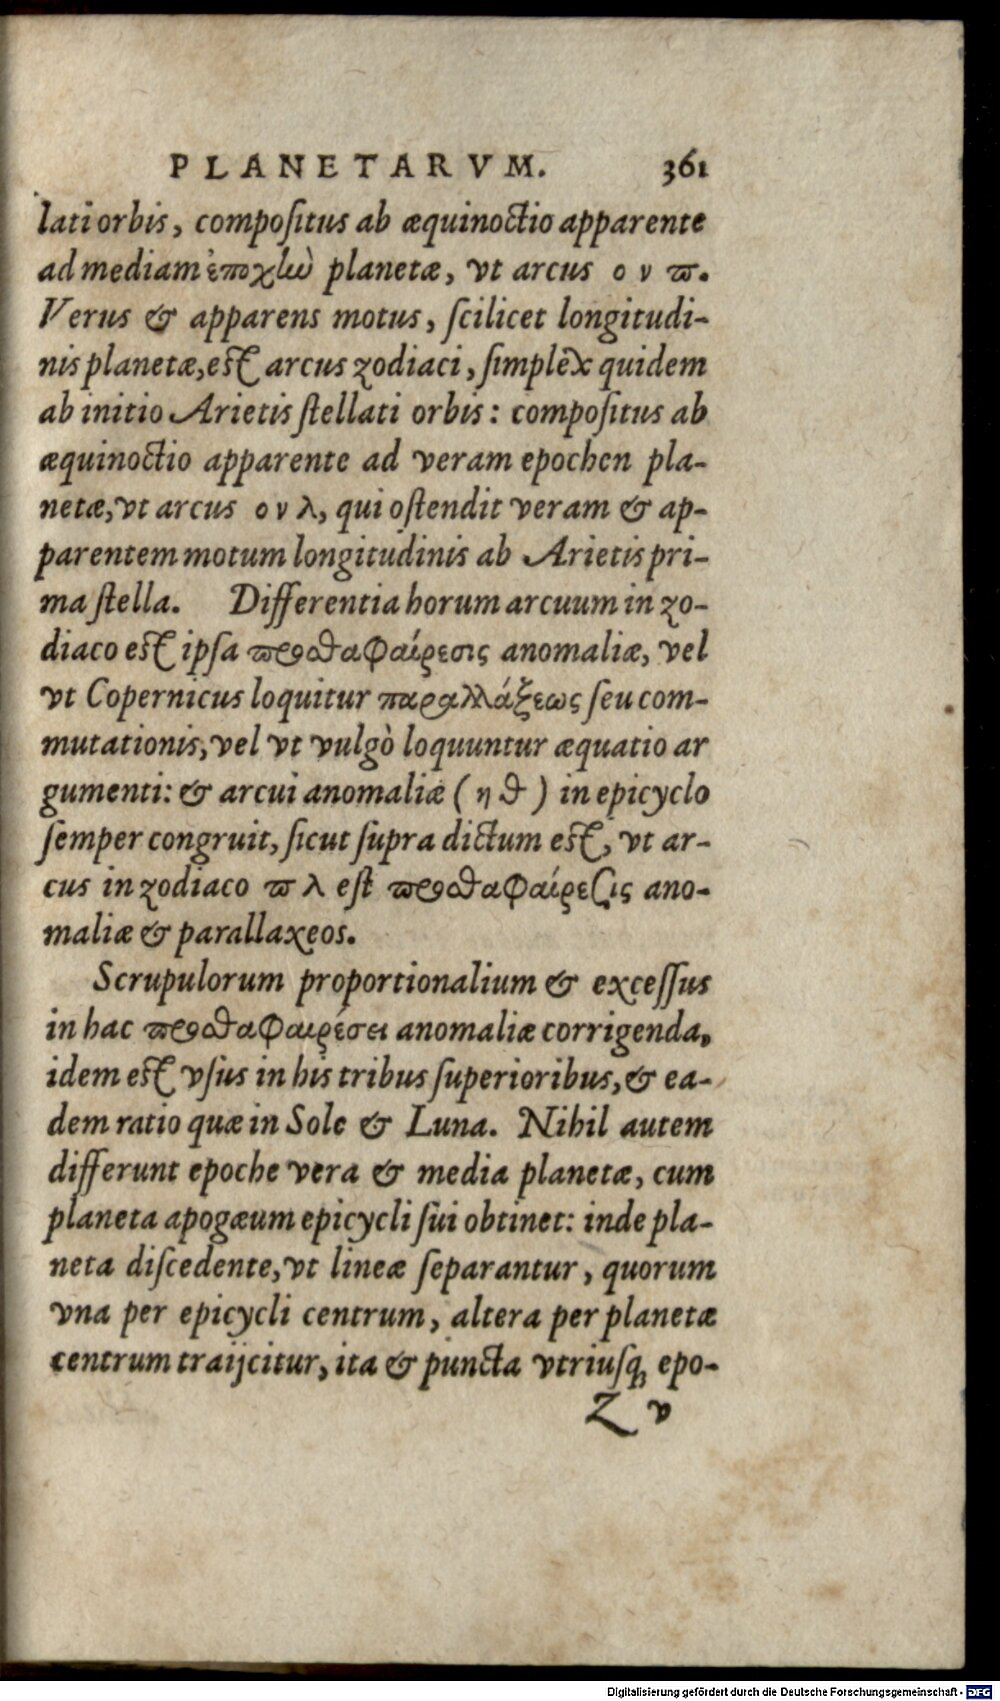 PLANETARVM. 361
lati orbis, compositus ab æquinoctio apparente
ad mediam ἐποχὼ planetæ, vt arcus ο ν ϖ.
Verus & apparens motus, scilicet longitudi-
nis planetæ, est arcus zodiaci, simplex quidem
ab initio Arietis stellati orbis: compositus ab
æquinoctio apparente ad veram epochen pla-
netæ, vt arcus ο ν λ, qui ostendit veram & ap-
parentem motum longitudinis ab Arietis pri-
ma stella. Differentia horum arcuum in zo-
diaco est ipsa ϖροσθαφαίρεσις anomaliæ, vel
vt Copernicus loquitur παραλλάξεως seu com-
mutationis, vel vt vulgò loquuntur æquatio ar
gumenti: & arcui anomaliæ (η θ) in epicyclo
semper congruit, sicut supra dictum est, vt ar-
cus in zodiaco ϖ λ est ϖροσθαφαίρεσις ano-
maliæ & parallaxeos.
Scrupulorum proportionalium & excessus
in hac ϖροσθαφαιρέσει anomaliæ corrigenda,
idem est vsus in his tribus superioribus, & ea-
dem ratio quæ in Sole & Luna. Nihil autem
differunt epoche vera & media planetæ, cum
planeta apogæum epicycli sui obtinet: inde pla-
neta discedente, vt lineæ separantur, quorum
vna per epicycli centrum, altera per planetæ
centrum traijcitur, ita & puncta vtriusq; epo-
Z v
Digitalisierung gefördert durch die Deutsche Forschungsgemeinschaft - DFG